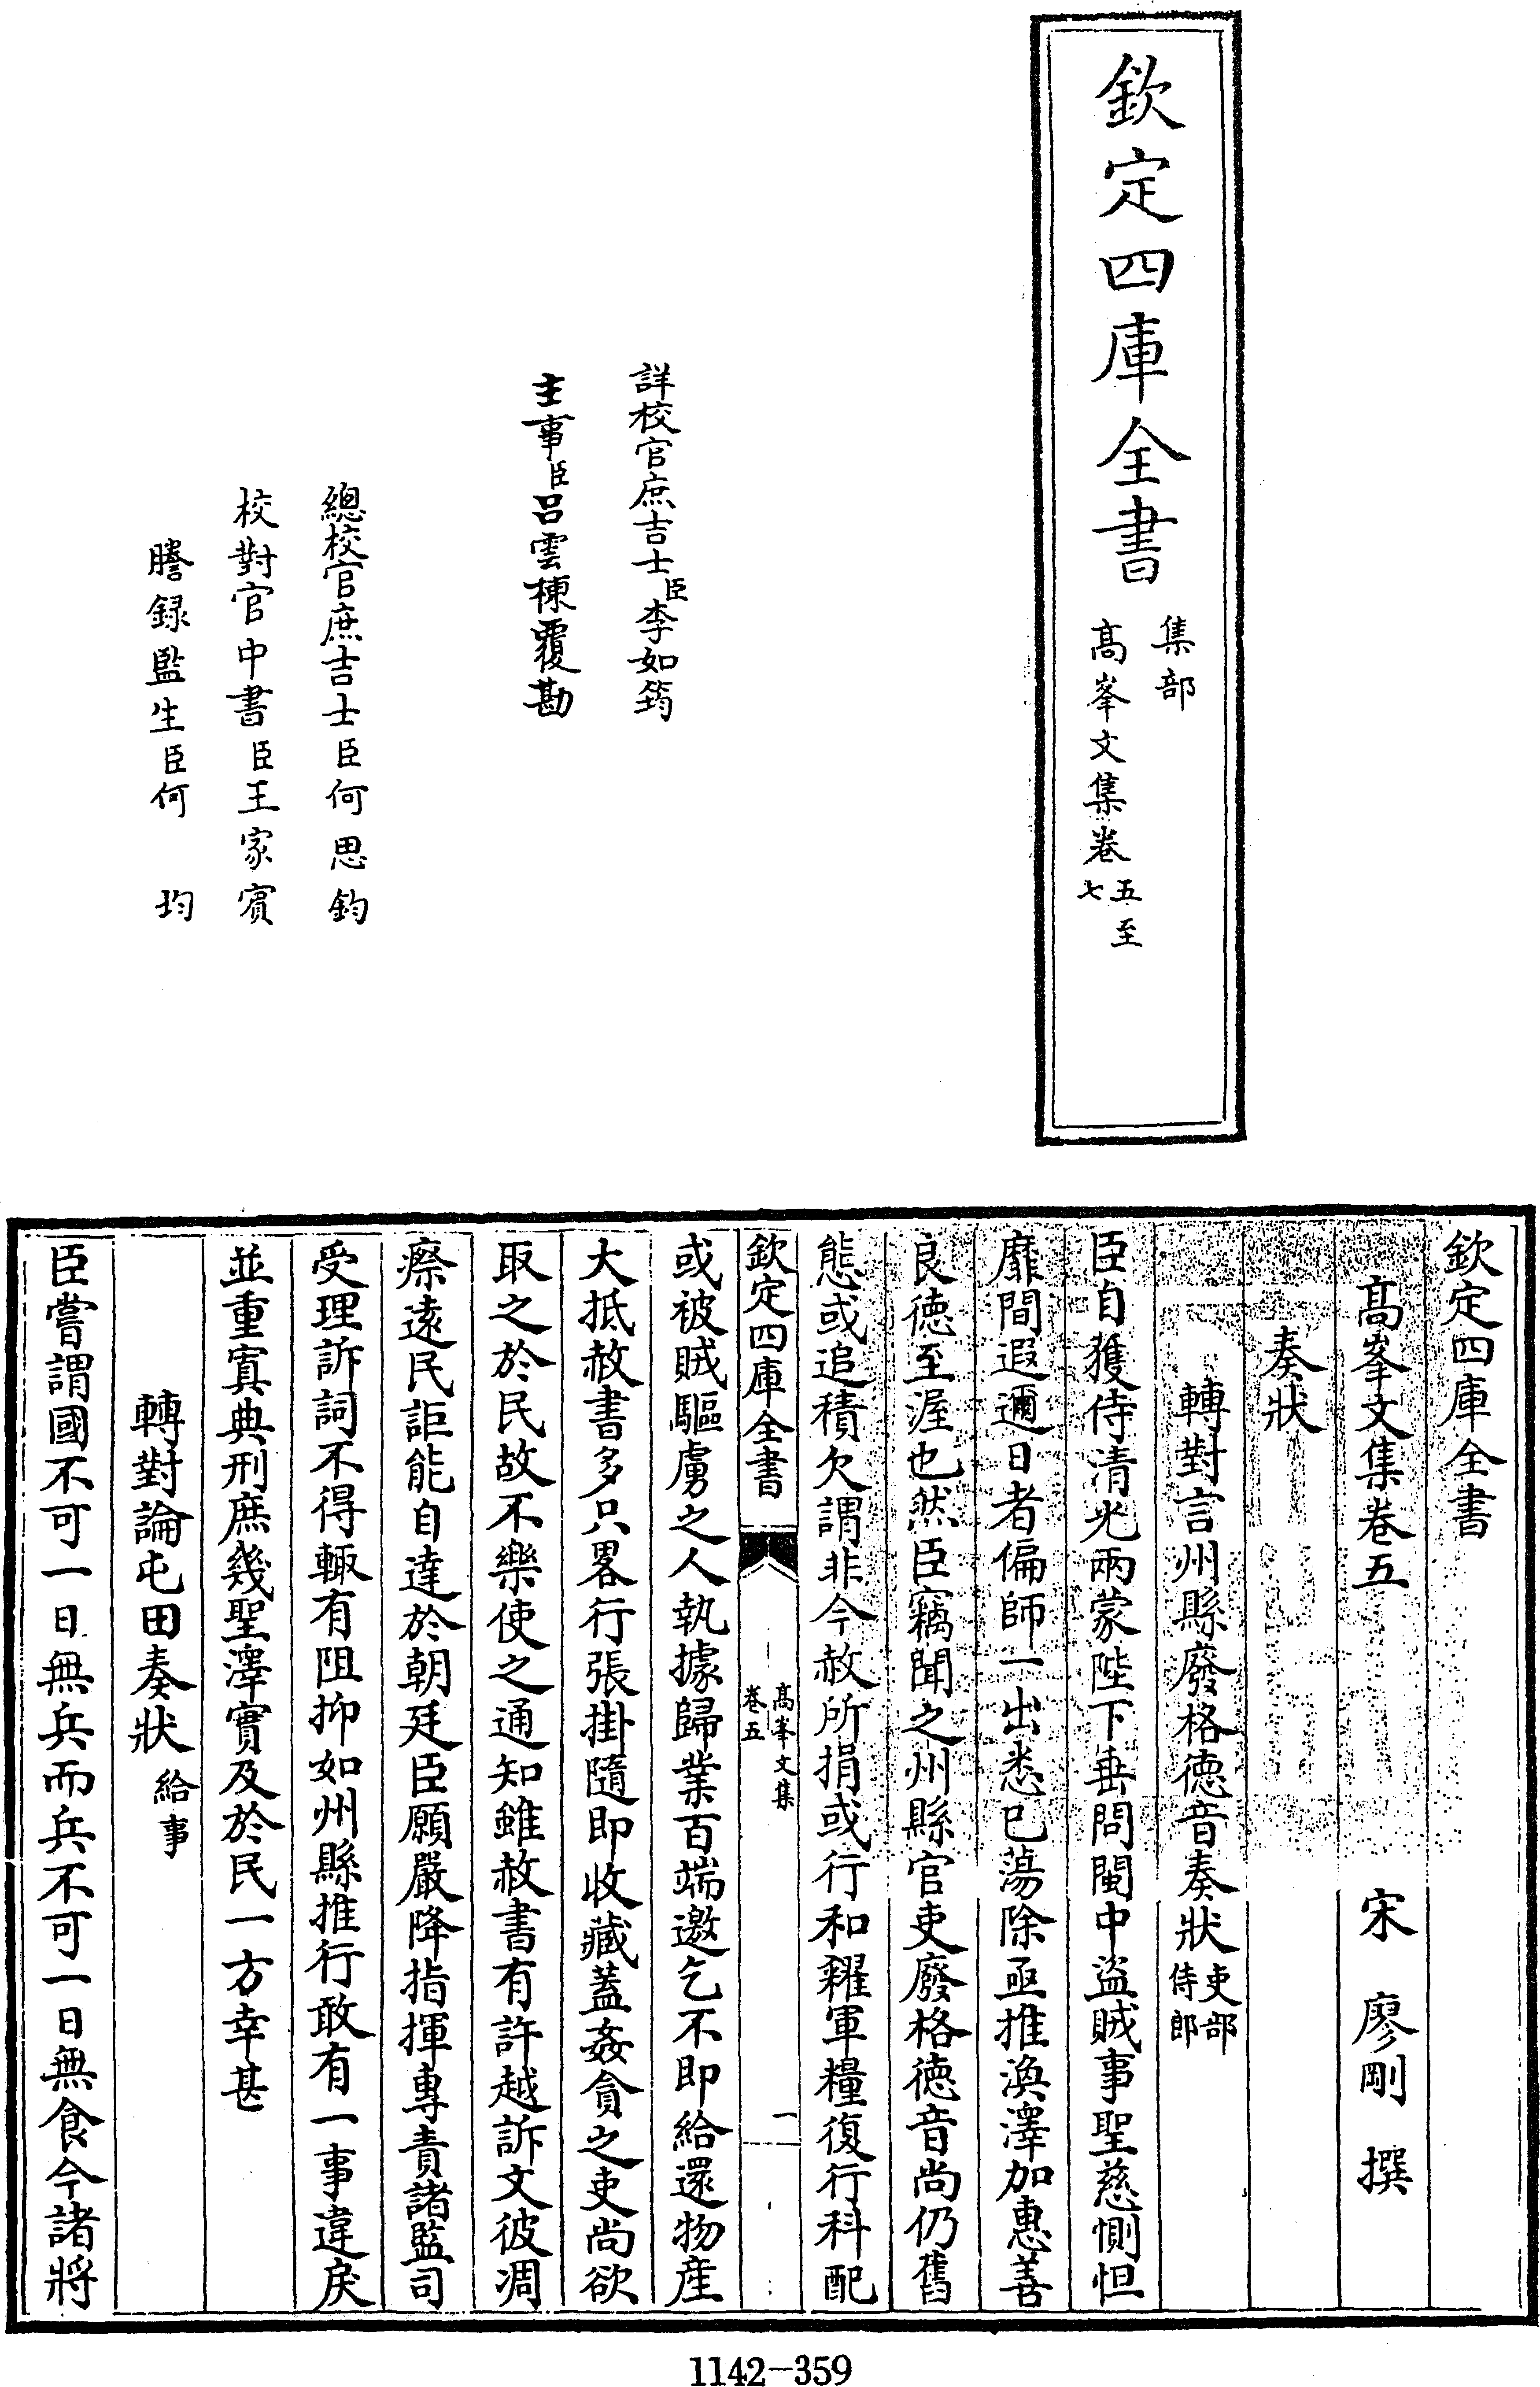 欽定四庫全書
集部
髙峯文集卷五至七
詳校官庶吉士臣李如筠
主事臣呂雲棟覆勘
總校官庶吉士臣何思鈞
校對官中書臣王家賓
謄録監生臣何均
欽定四庫全書
髙峯文集卷五
宋 廖剛 撰
奏狀
轉對言州縣廢格徳音奏狀吏部侍郎
臣自獲侍清光兩蒙陛下垂問閩中盜賊事聖慈惻怛
靡間遐邇日者偏師一出悉已蕩除亟推渙澤加惠善
良徳至渥也然臣竊聞之州縣官吏廢格徳音尚仍舊
態或追積欠謂非今赦所捐或行和糴軍糧復行科配
欽定四庫全書
髙峯文集
卷五
一
或被賊驅虜之人執據歸業百端邀乞不即給還物産
大抵赦書多只畧行張掛隨即收藏蓋姦貪之吏尚欲
取之於民故不樂使之通知雖赦書有許越訴文彼凋
瘵遠民詎能自達於朝廷臣願嚴降指揮專責諸監司
受理訴詞不得輙有阻抑如州縣推行敢有一事違戾
並重寘典刑庶幾聖澤實及於民一方幸甚
轉對論屯田奏狀給事
臣嘗謂國不可一日無兵而兵不可一日無食今諸將
1142-359